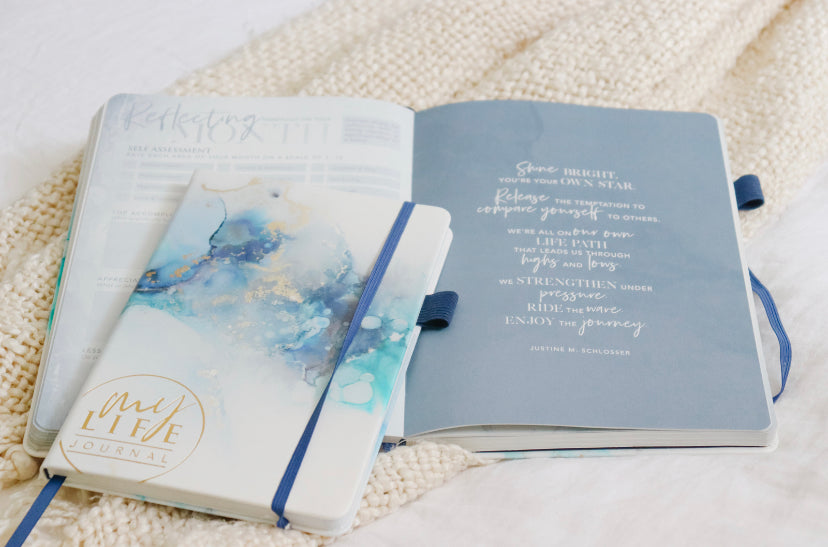 Reflecting
MONTH
SELF ASSESSMENT
RATE EACH AREA OF YOUR MONTH ON A SCALE OF 1-10
Shine BRIGHT.
YOU'RE YOUR OWN STAR.
Release THE TEMPTATION TO
compare yourself TO OTHERS.
WE'RE ALL ON our own
LIFE PATH
THAT LEADS US THROUGH
highs AND lows.
WE STRENGTHEN UNDER
pressure.
RIDE THE wave
ENJOY THE journey
JUSTINE M. SCHLOSSER
my
LIFE
JOURNAL